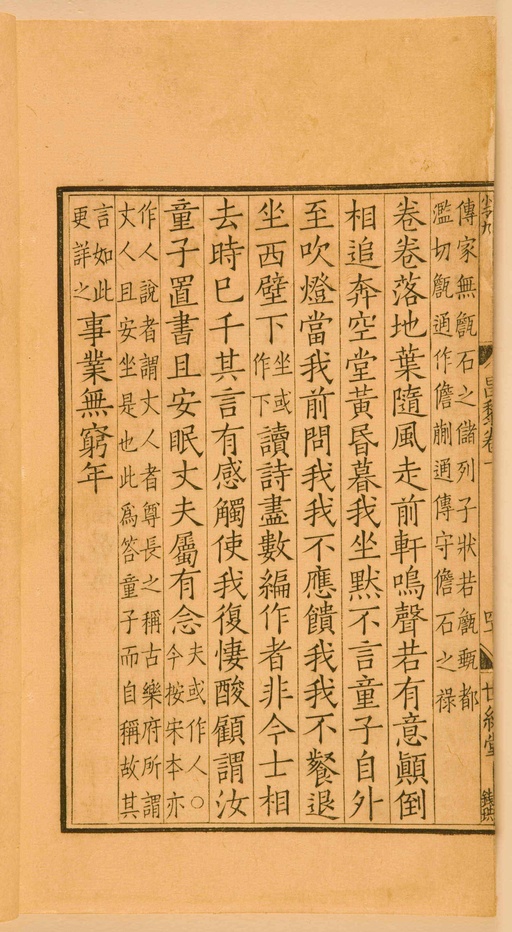 昌黎卷一
世綵堂
傳家無甔石之儲列子狀若甔甀都
濫切甔通作儋蒯通傳守儋石之祿
卷卷落地葉隨風走前軒鳴聲若有意顚倒
相追奔空堂黃昏暮我坐默不言童子自外
至吹燈當我前問我我不應饋我我不餐退
坐西壁下坐或作下讀詩盡數編作者非今士相
去時已千其言有感觸使我復悽酸顧謂汝
童子置書且安眠丈夫屬有念夫或作人○今按宋本亦
作人說者謂丈人者尊長之稱古樂府所謂
丈人且安坐是也此爲答童子而自稱故其
言如此更詳之事業無窮年